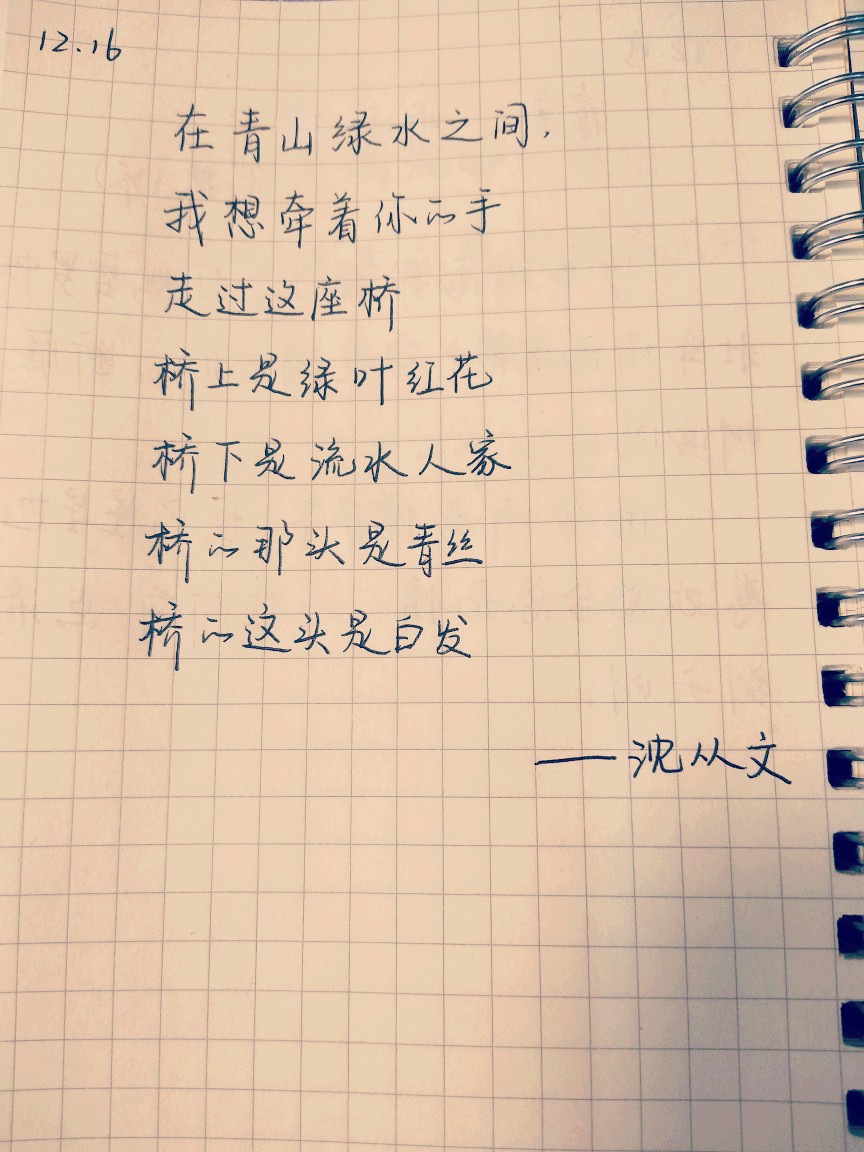 12.16
在青山绿水之间，
我想牵着你的手
走过这座桥
桥上是绿叶红花
桥下是流水人家
桥的那头是青丝
桥的这头是白发
——沈从文